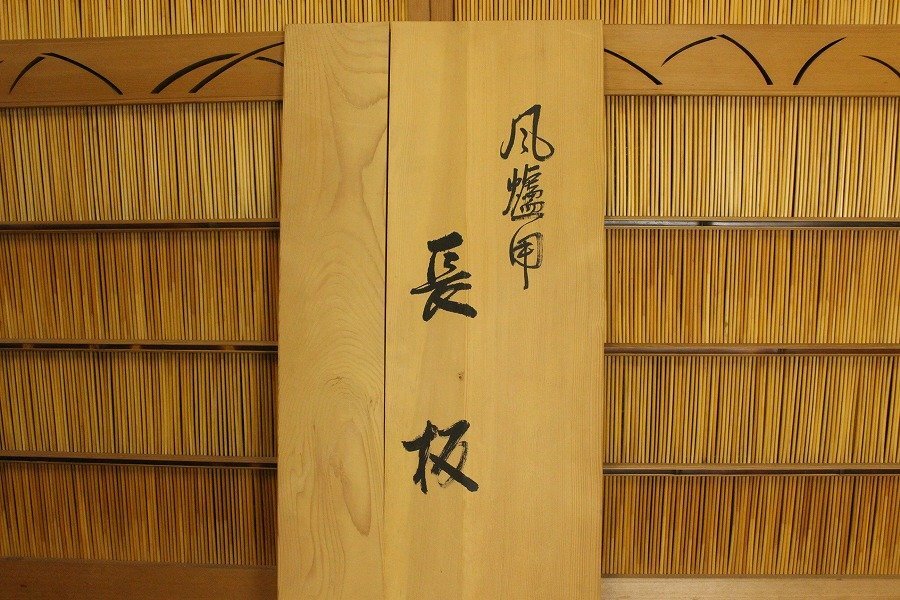 風爐用
長板